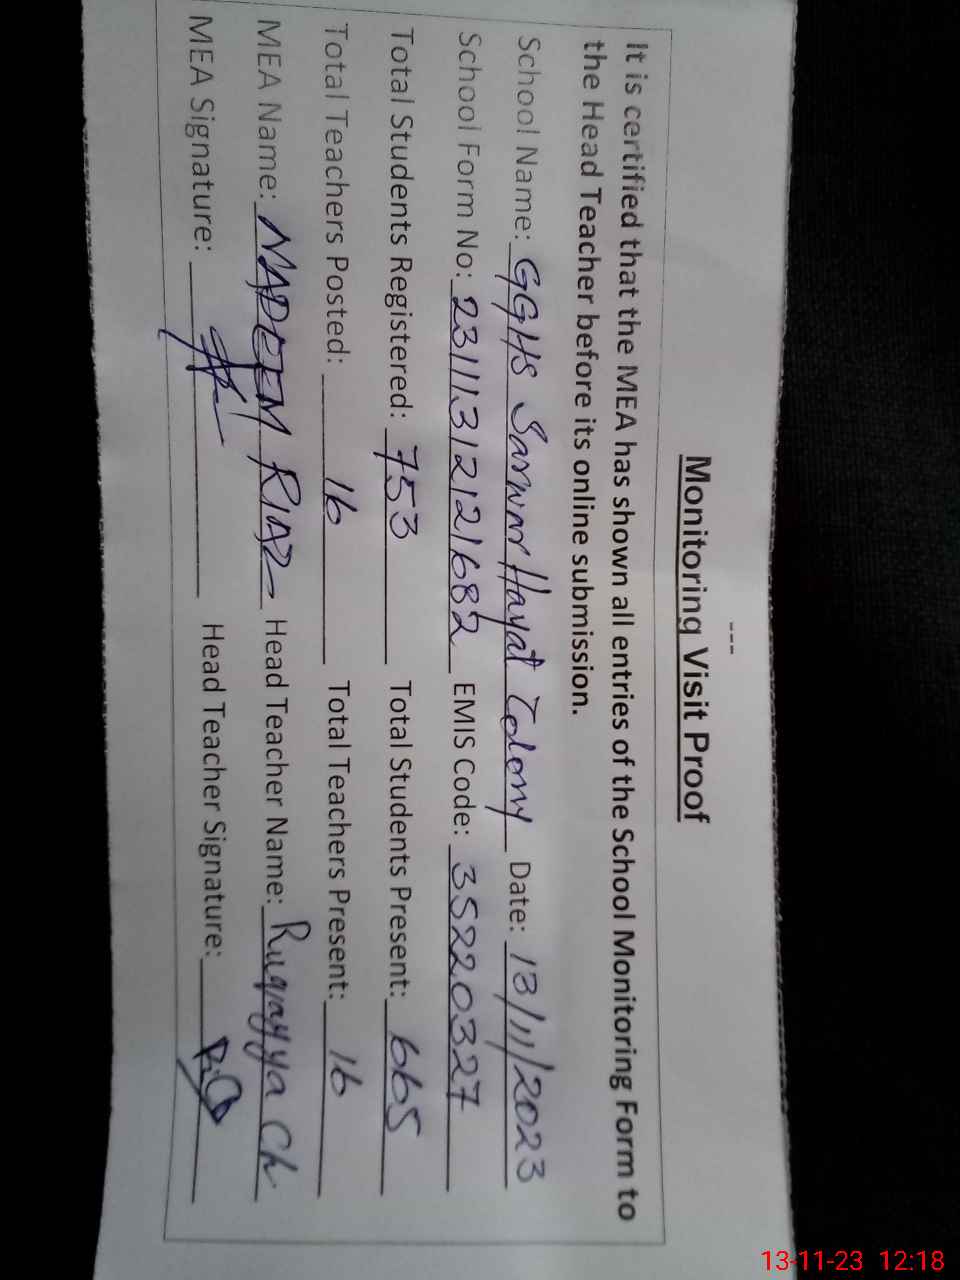 ---
Monitoring Visit Proof
It is certified that the MEA has shown all entries of the School Monitoring Form to
the Head Teacher before its online submission.
School Name: GGHS Sarwar Hayat Colony Date: 13/11/2023
School Form No: 23111312121682 EMIS Code: 35220327
Total Students Registered: 753 Total Students Present: 665
Total Teachers Posted: 16 Total Teachers Present: 16
MEA Name: NADEEM RIAZ Head Teacher Name: Ruqayya Ch
MEA Signature: Head Teacher Signature:
13-11-23 12:18